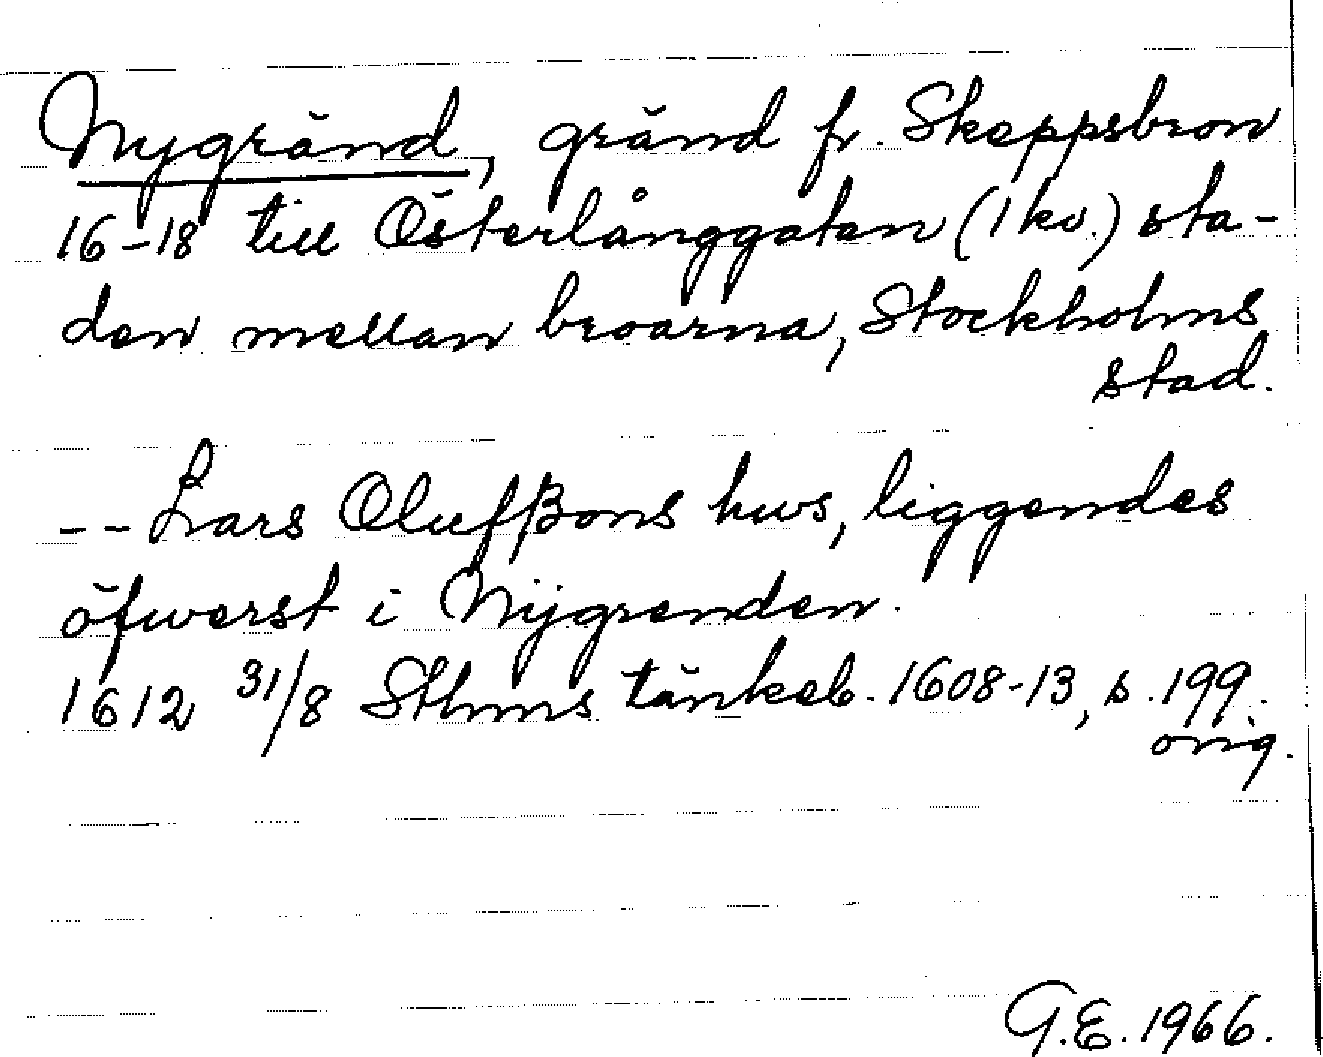 Nygränd, gränd fr. Skeppsbron
16-18 till Österlånggatan (1 kv.) sta-
den mellan broarna, Stockholms
stad.
-- Lars Olufßons hws, liggendes
öfwerst i Nÿgrenden.
1612 31/8 Sthms tänkeb. 1608-13, s. 199.
orig.
G.E. 1966.